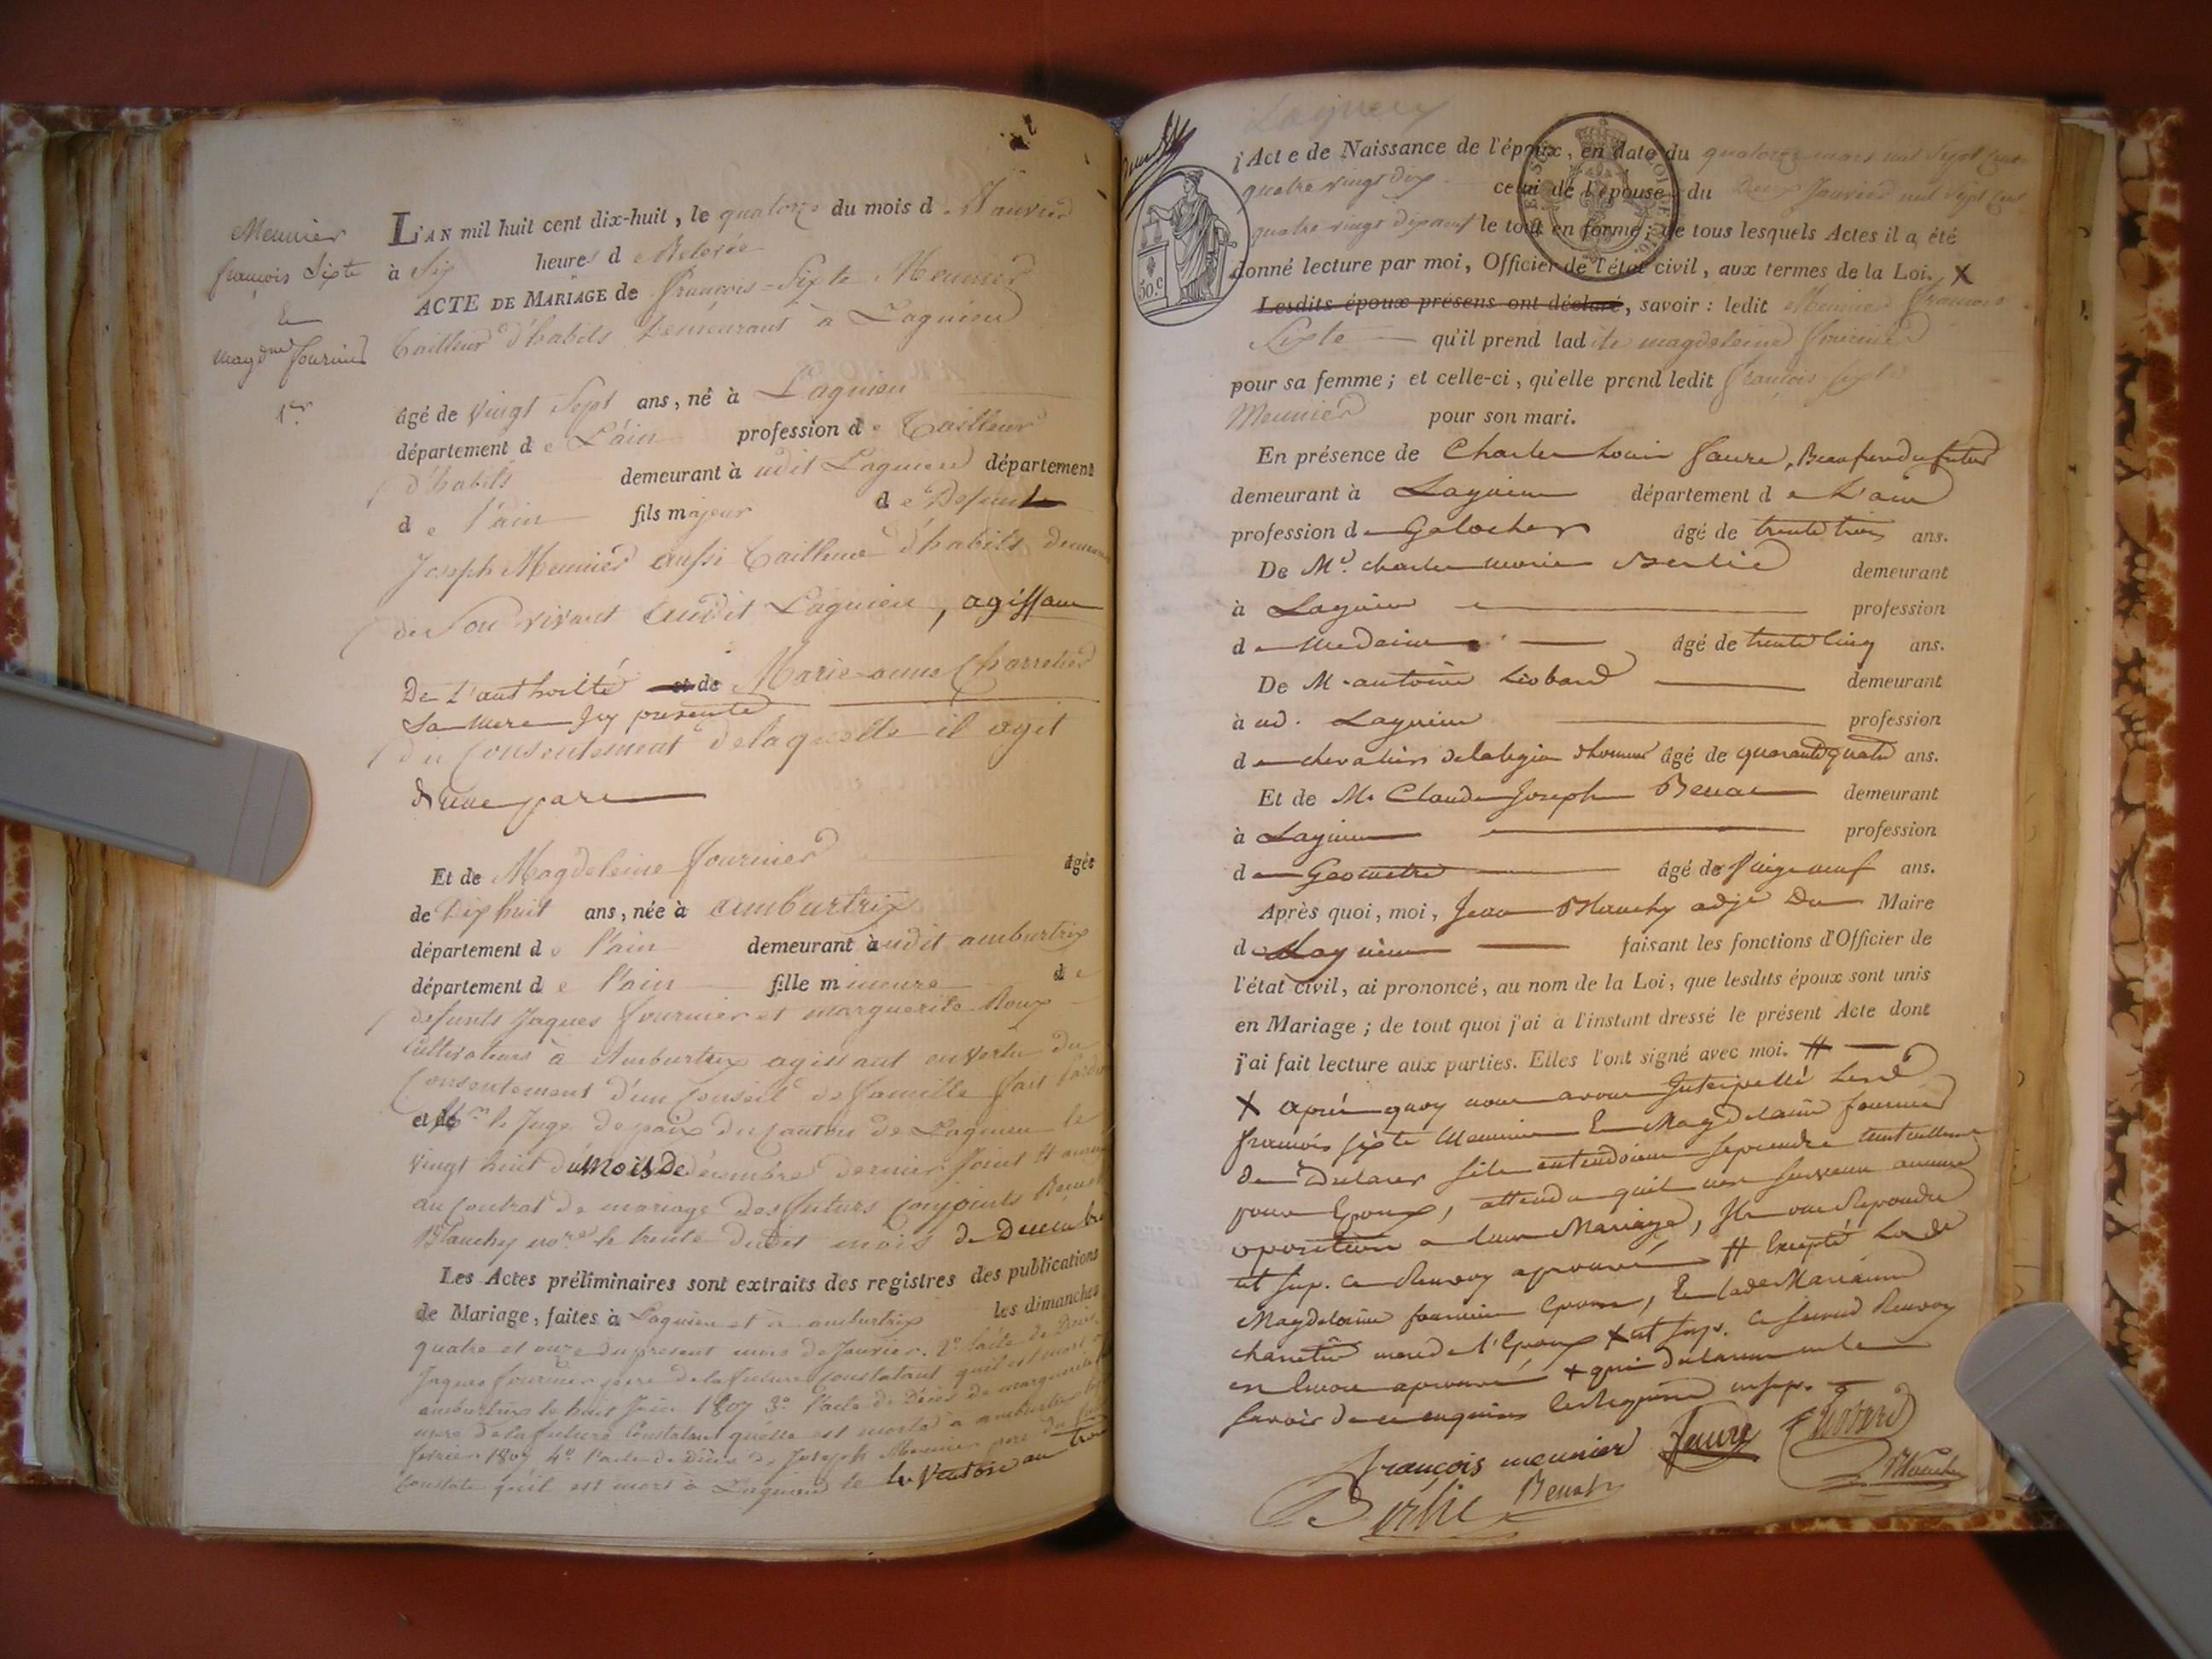 Meunier
françois Sixte
&
magdne fournier
1er
L'AN mil huit cent dix-huit, le quatorze du mois de Janvier
à Six heures de Relevée
ACTE DE MARIAGE de François-Sixte Meunier
Tailleur d'habits Demeurant à Lagnieu
âgé de vingt Sept ans, né à Lagnieu
département de L'ain profession de Tailleur
d'habits demeurant à udit Lagnieu département
de l'ain fils majeur de Defunt
Joseph Meunier aussi Tailleur d'habits
de Son vivant audit Lagnieu, agissant
De L'authorité et de Marie anne Charretier
Sa mere Icy presente
du Consentement de laquelle il agit
d'une part
Et de Magdeleine fournier agée
de Dix huit ans, née à ambutrix
département de l'ain demeurant audit ambutrix
département de l'ain fille mineure de
defunts Jaques fournier et marguerite Roux
Cultivateurs à Ambutrix agissant en vertu du
Consentement d'un Conseil de famille fait
et de le Juge de paix du Canton de Lagnieu le
vingt huit du Mois De décembre dernier Joint
au Contrat de mariage des futurs Conjoints
Blanchy nore le trente dudit mois de Decembre
Les Actes préliminaires sont extraits des registres des publications
de Mariage, faites à Lagnieu et à ambutrix les dimanches
quatre et onze du present mois de Janvier. 2° l'acte de Décès
Jaques fournier pere de la future Constatant qu'il est mort
ambutrix le huit Juin 1807 3° l'acte de Décès de marguerite
mere de la future Constatant qu'elle est morte à ambutrix
fevrier 1807 4° l'acte de Décès de Joseph Meunier pere du
Constate qu'il est mort à Lagnieu le
Lagnieu
l'Acte de Naissance de l'époux, en date du quatorze mars mil Sept cent
quatre vingt dix celui de l'épouse du Deux Janvier mil sept cent
quatre vingt dix neuf le tout en forme; de tous lesquels Actes il a été
donné lecture par moi, Officier de l'état civil, aux termes de la Loi. X
50.c
Lesdits époux présens ont déclaré, savoir : ledit Meunier françois
Sixte qu'il prend ladite magdeleine fournier
pour sa femme; et celle-ci, qu'elle prend ledit françois Sixte
Meunier pour son mari.
En présence de Charles Louis Faure, Beaufrere du futur
demeurant à Lagnieu département de L'ain
profession de Galocher âgé de trente trois ans.
De Mr. charles marie Berlie demeurant
à Lagnieu profession
de medecin âgé de trente Cinq ans.
De M. antoine Liobard demeurant
à ud. Lagnieu profession
de chevalier de la legion d'honneur âgé de quarante quatre ans.
Et de M. Claude Joseph Benat demeurant
à Lagnieu profession
de Geometre âgé de vingt neuf ans.
Après quoi, moi, Jean Blanchy adjt Du Maire
de Lagnieu faisant les fonctions d'Officier de
l'état civil, ai prononcé, au nom de la Loi, que lesdits époux sont unis
en Mariage ; de tout quoi j'ai à l'instant dressé le présent Acte dont
j'ai fait lecture aux parties. Elles l'ont signé avec moi. #
X aprés quoy nous avons Interpellé Lesd
françois sixte Meunier & Magdelaine fournier
de Declarer s'ils entendoient se prendre
pour Epoux, attendu quil n'est survenu aucune
oposition a leur Mariage, Ils ont Repondu
Renvoy aprouvé # Excepté Lade
Magdelaine fournier Epouse, & lade Marianne
charretier mere de l'Epoux X Ce second Renvoy
encore aprouvé + qui declarent ne le
savoir de ce enquises
françois meunier Faure Liobard
Berlie Benat Blanchy